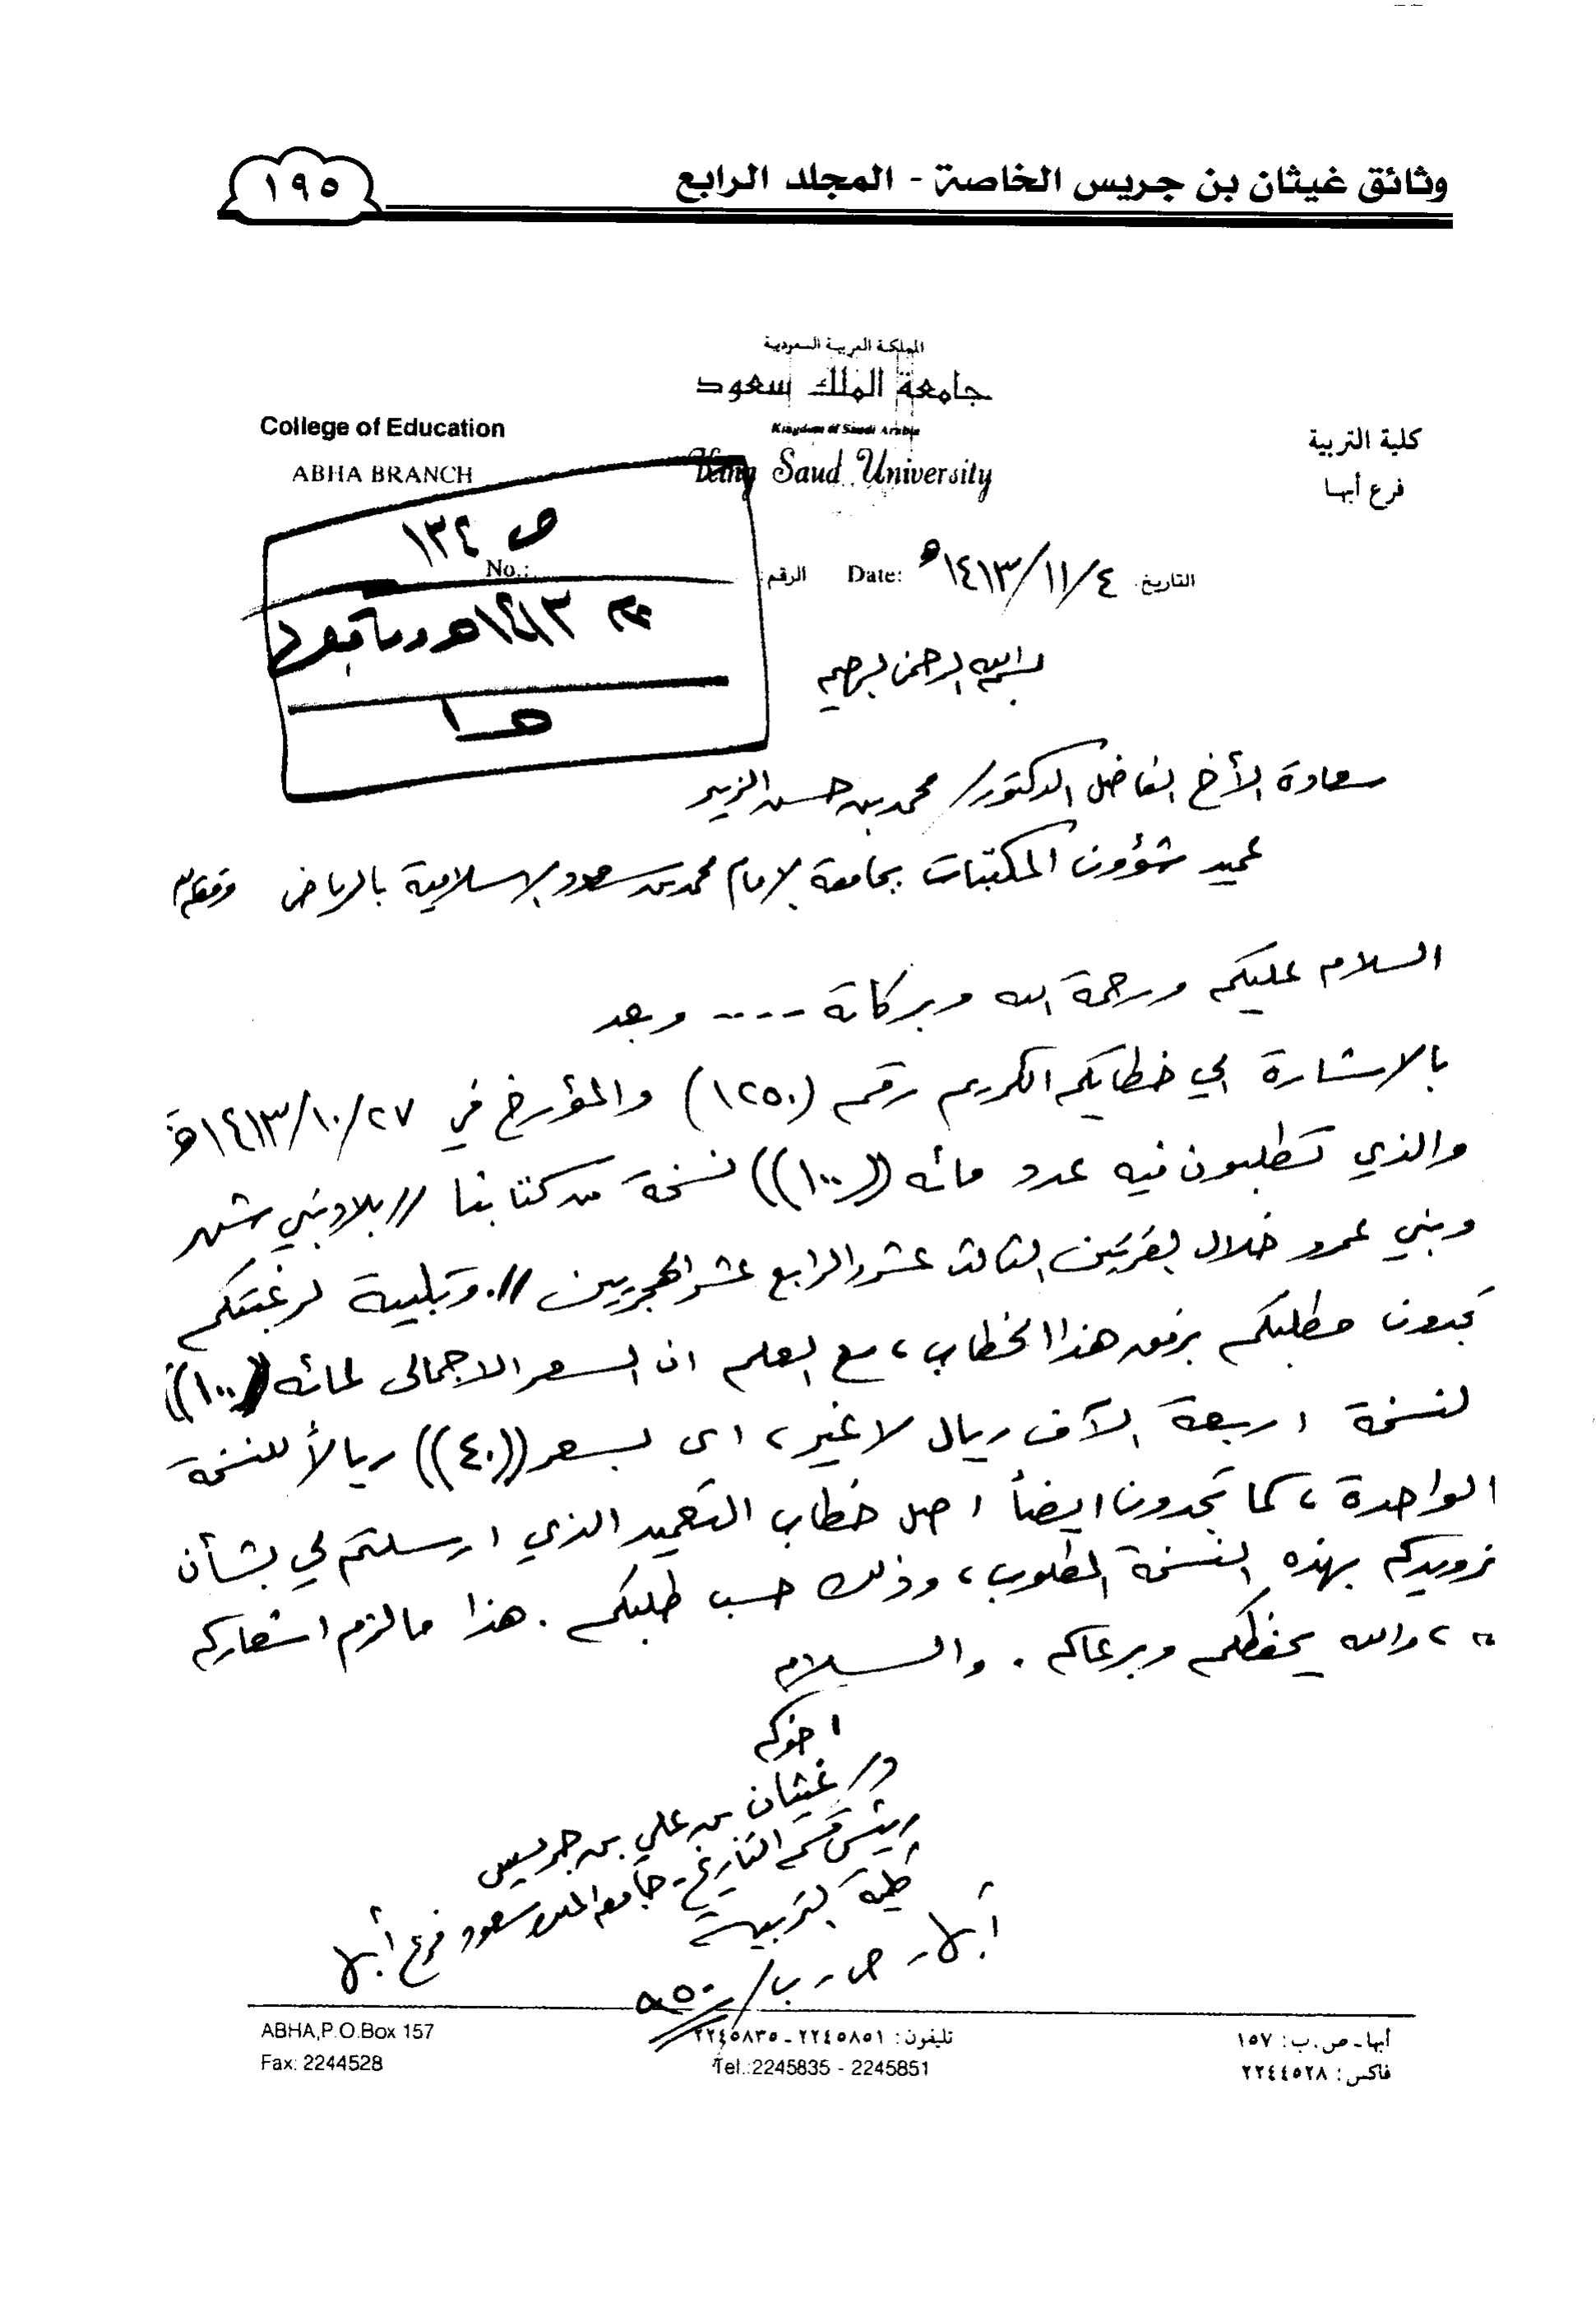 وثائق غيثان بن جريس الخاصة - المجلد الرابع
١٩٥
المملكة العربية السعودية
جامعة الملك سعود
Kingdom of Saudi Arabia
King Saud University
كلية التربية
فرع أبها
College of Education
ABHA BRANCH
التاريخ: ١٤١٣/١١/٤ه Date:
الرقم: No.:
ص ١٣٤
١٤١٣هـ وما بعدها
بسم الله الرحمن الرحيم
سعادة الأخ الفاضل الدكتور/ محمد بن حسن الزير
عميد شؤون المكتبات بجامعة الإمام محمد بن سعود الإسلامية بالرياض وفقه الله
السلام عليكم ورحمة الله وبركاته ---- وبعد
بالاشارة الي خطابكم الكريم رقم (١٢٥٠) والمؤرخ في ١٤١٣/١٠/٢٧هـ
والذي تطلبون فيه عدد مائه ((١٠٠)) نسخة من كتابنا // بلاد بني شهر
وبني عمرو خلال القرنين الثالث عشر والرابع عشر الهجريين //. وتلبية لرغبتكم
تجدون مطلبكم برفق هذا الخطاب، مع العلم ان السعر الاجمالى لمائه ((١٠٠))
نسخة اربعة الآف ريال لاغير، اى بسعر ((٤٠)) ريالاً للنسخة
الواحدة، كما تجدون ايضاً اصل خطاب التعميد الذي ارسلتم لي بشأن
تزويدكم بهذه النسخة المطلوب، وذلك حسب طلبكم. هذا مالزم اشعاركم
به، والله يحفظكم ويرعاكم. والسلام
اخوكم
د/ غيثان بن علي بن جريس
رئيس قسم التاريخ - جامعة الملك سعود فرع أبها
كلية التربية
أبها - ص - ب/ ٩٥٠
أبها - ص.ب: ١٥٧
فاكس: ٢٢٤٤٥٢٨
تليفون: ٢٢٤٥٨٥١ - ٢٢٤٥٨٣٥
Tel.:2245835 - 2245851
ABHA,P.O.Box 157
Fax: 2244528